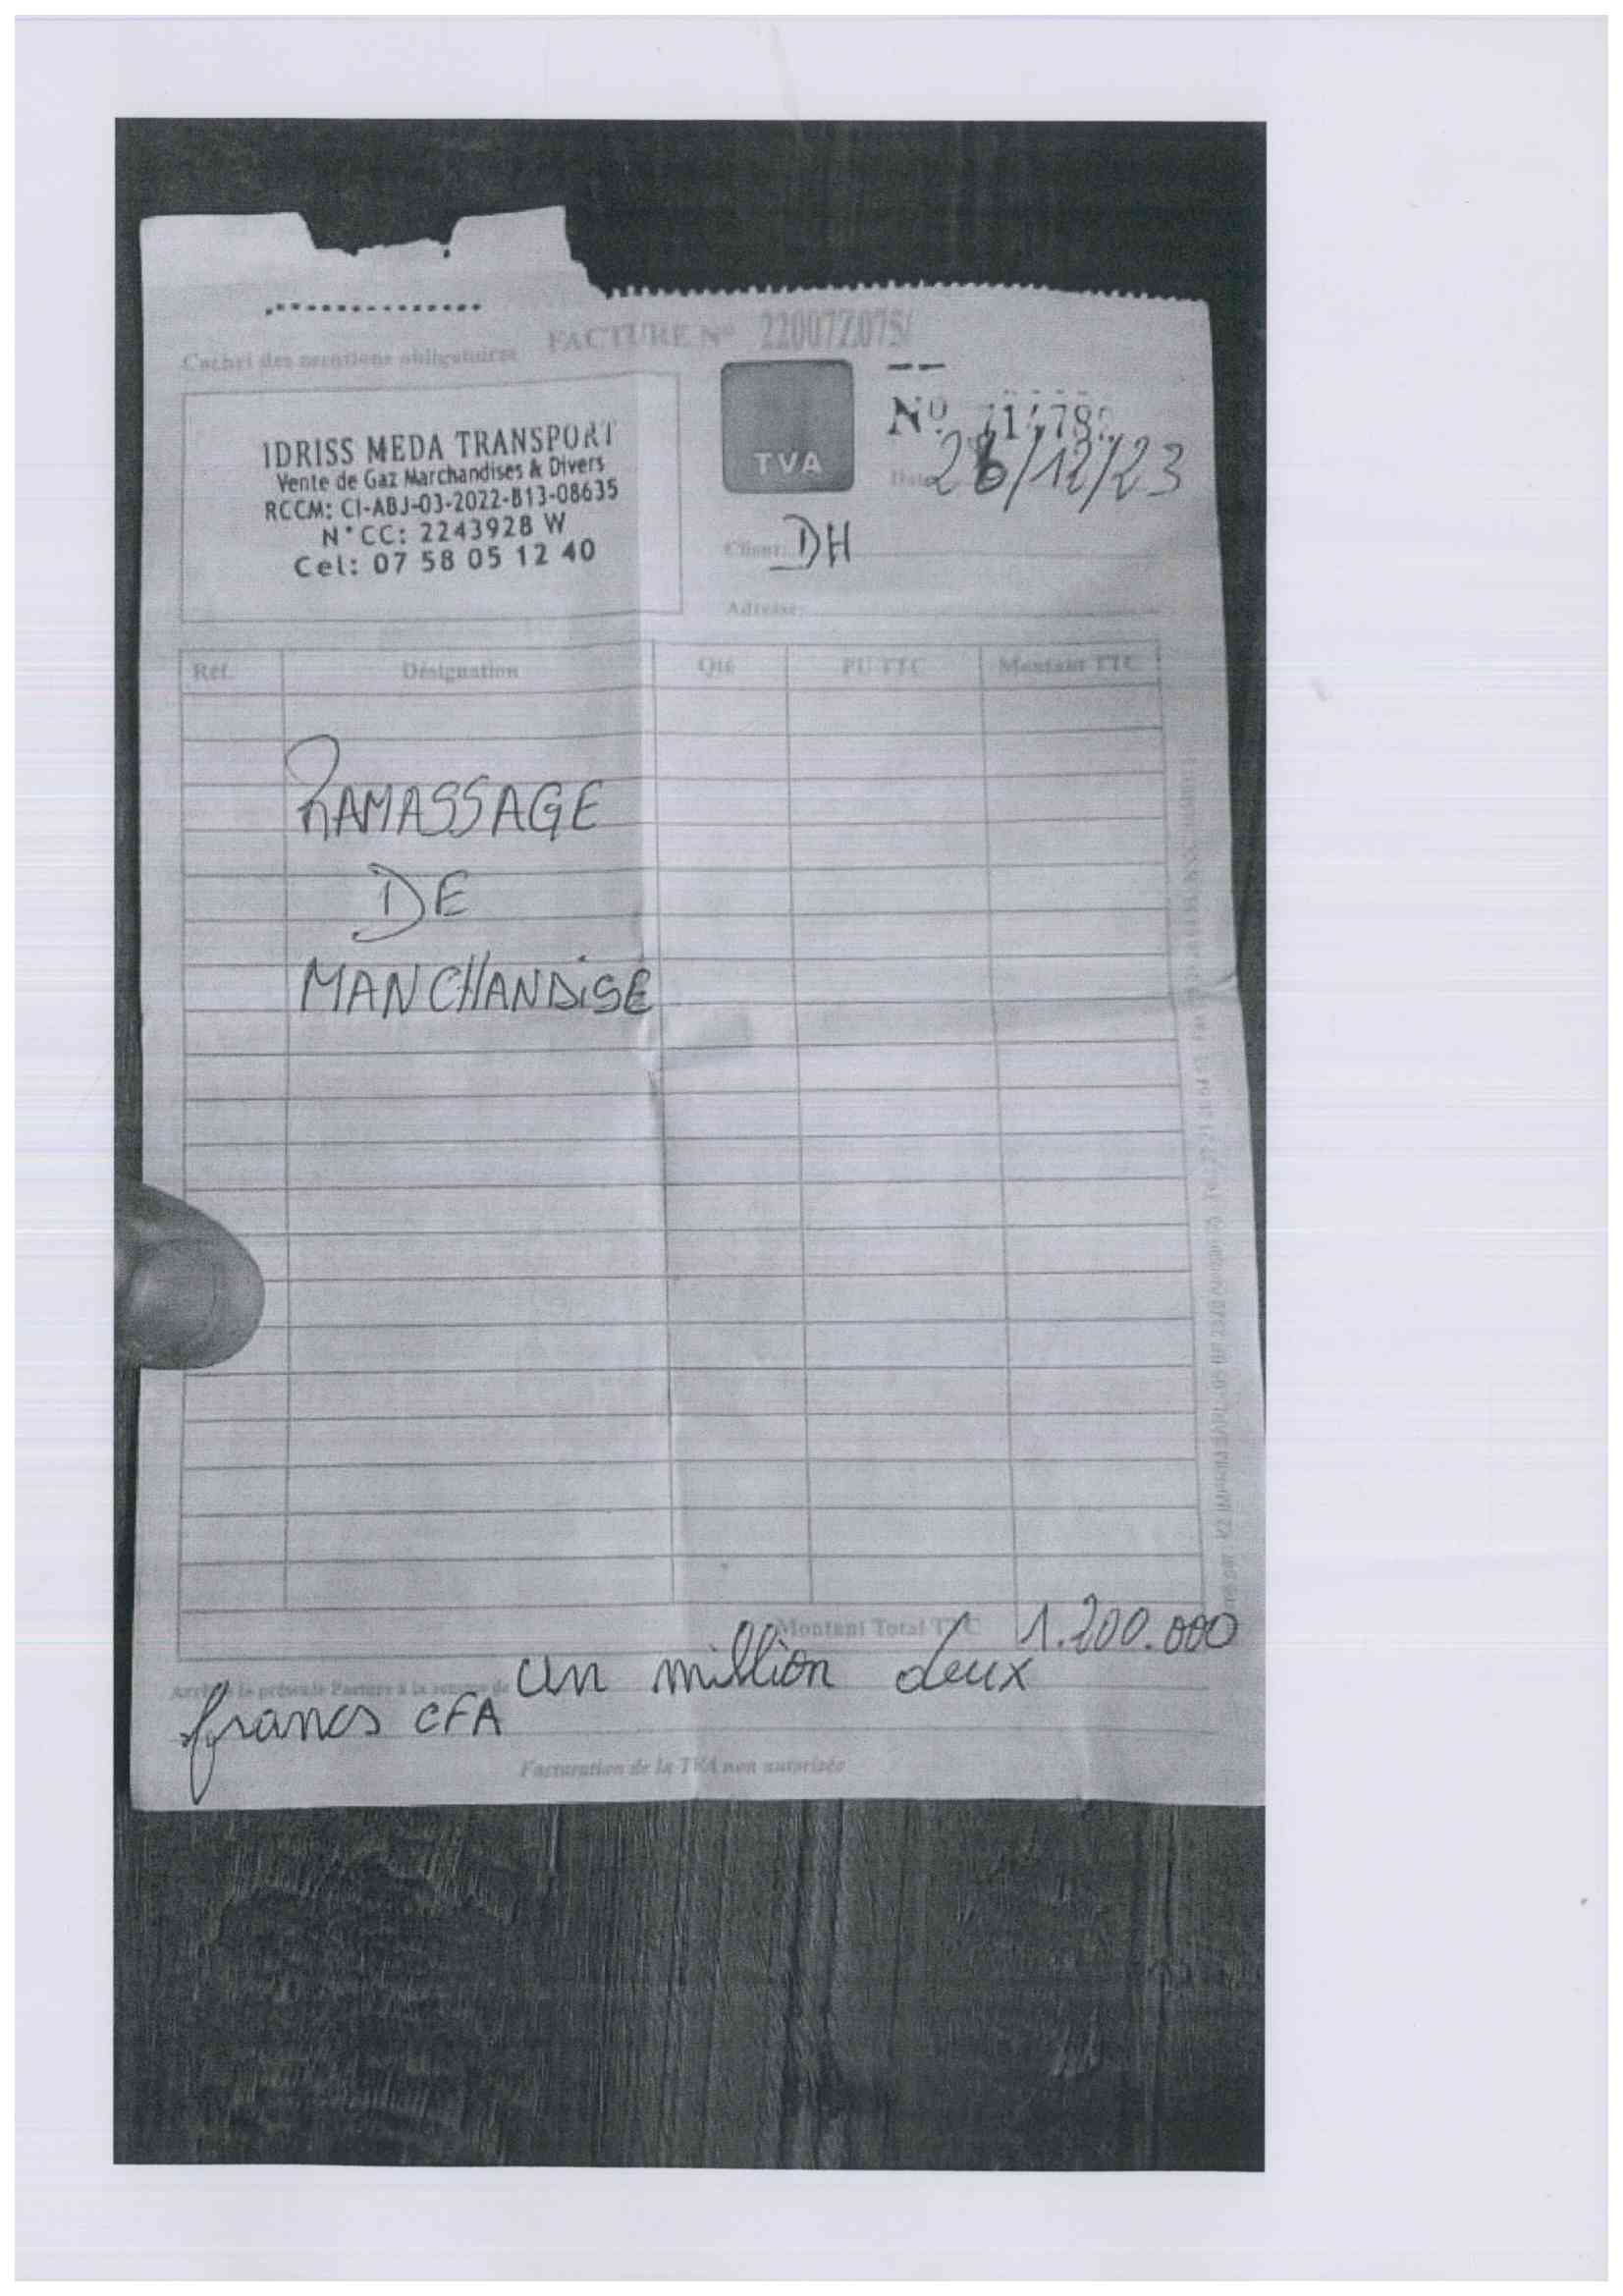 FACTURE N° 22007Z075
Cachet des mentions obligatoires
IDRISS MEDA TRANSPORT
Vente de Gaz Marchandises & Divers
RCCM: CI-ABJ-03-2022-B13-08635
N°CC: 2243928 W
Cel: 07 58 05 12 40
TVA
N°
Date 26/12/23
Client: DH
Adresse:
Réf. Désignation Qté PU TTC Montant TTC
RAMASSAGE
DE
MANCHANDISE
Montant Total TTC 1.200.000
Arrêté la présente Facture à la somme de un million deux
francs CFA
Facturation de la TVA non autorisée